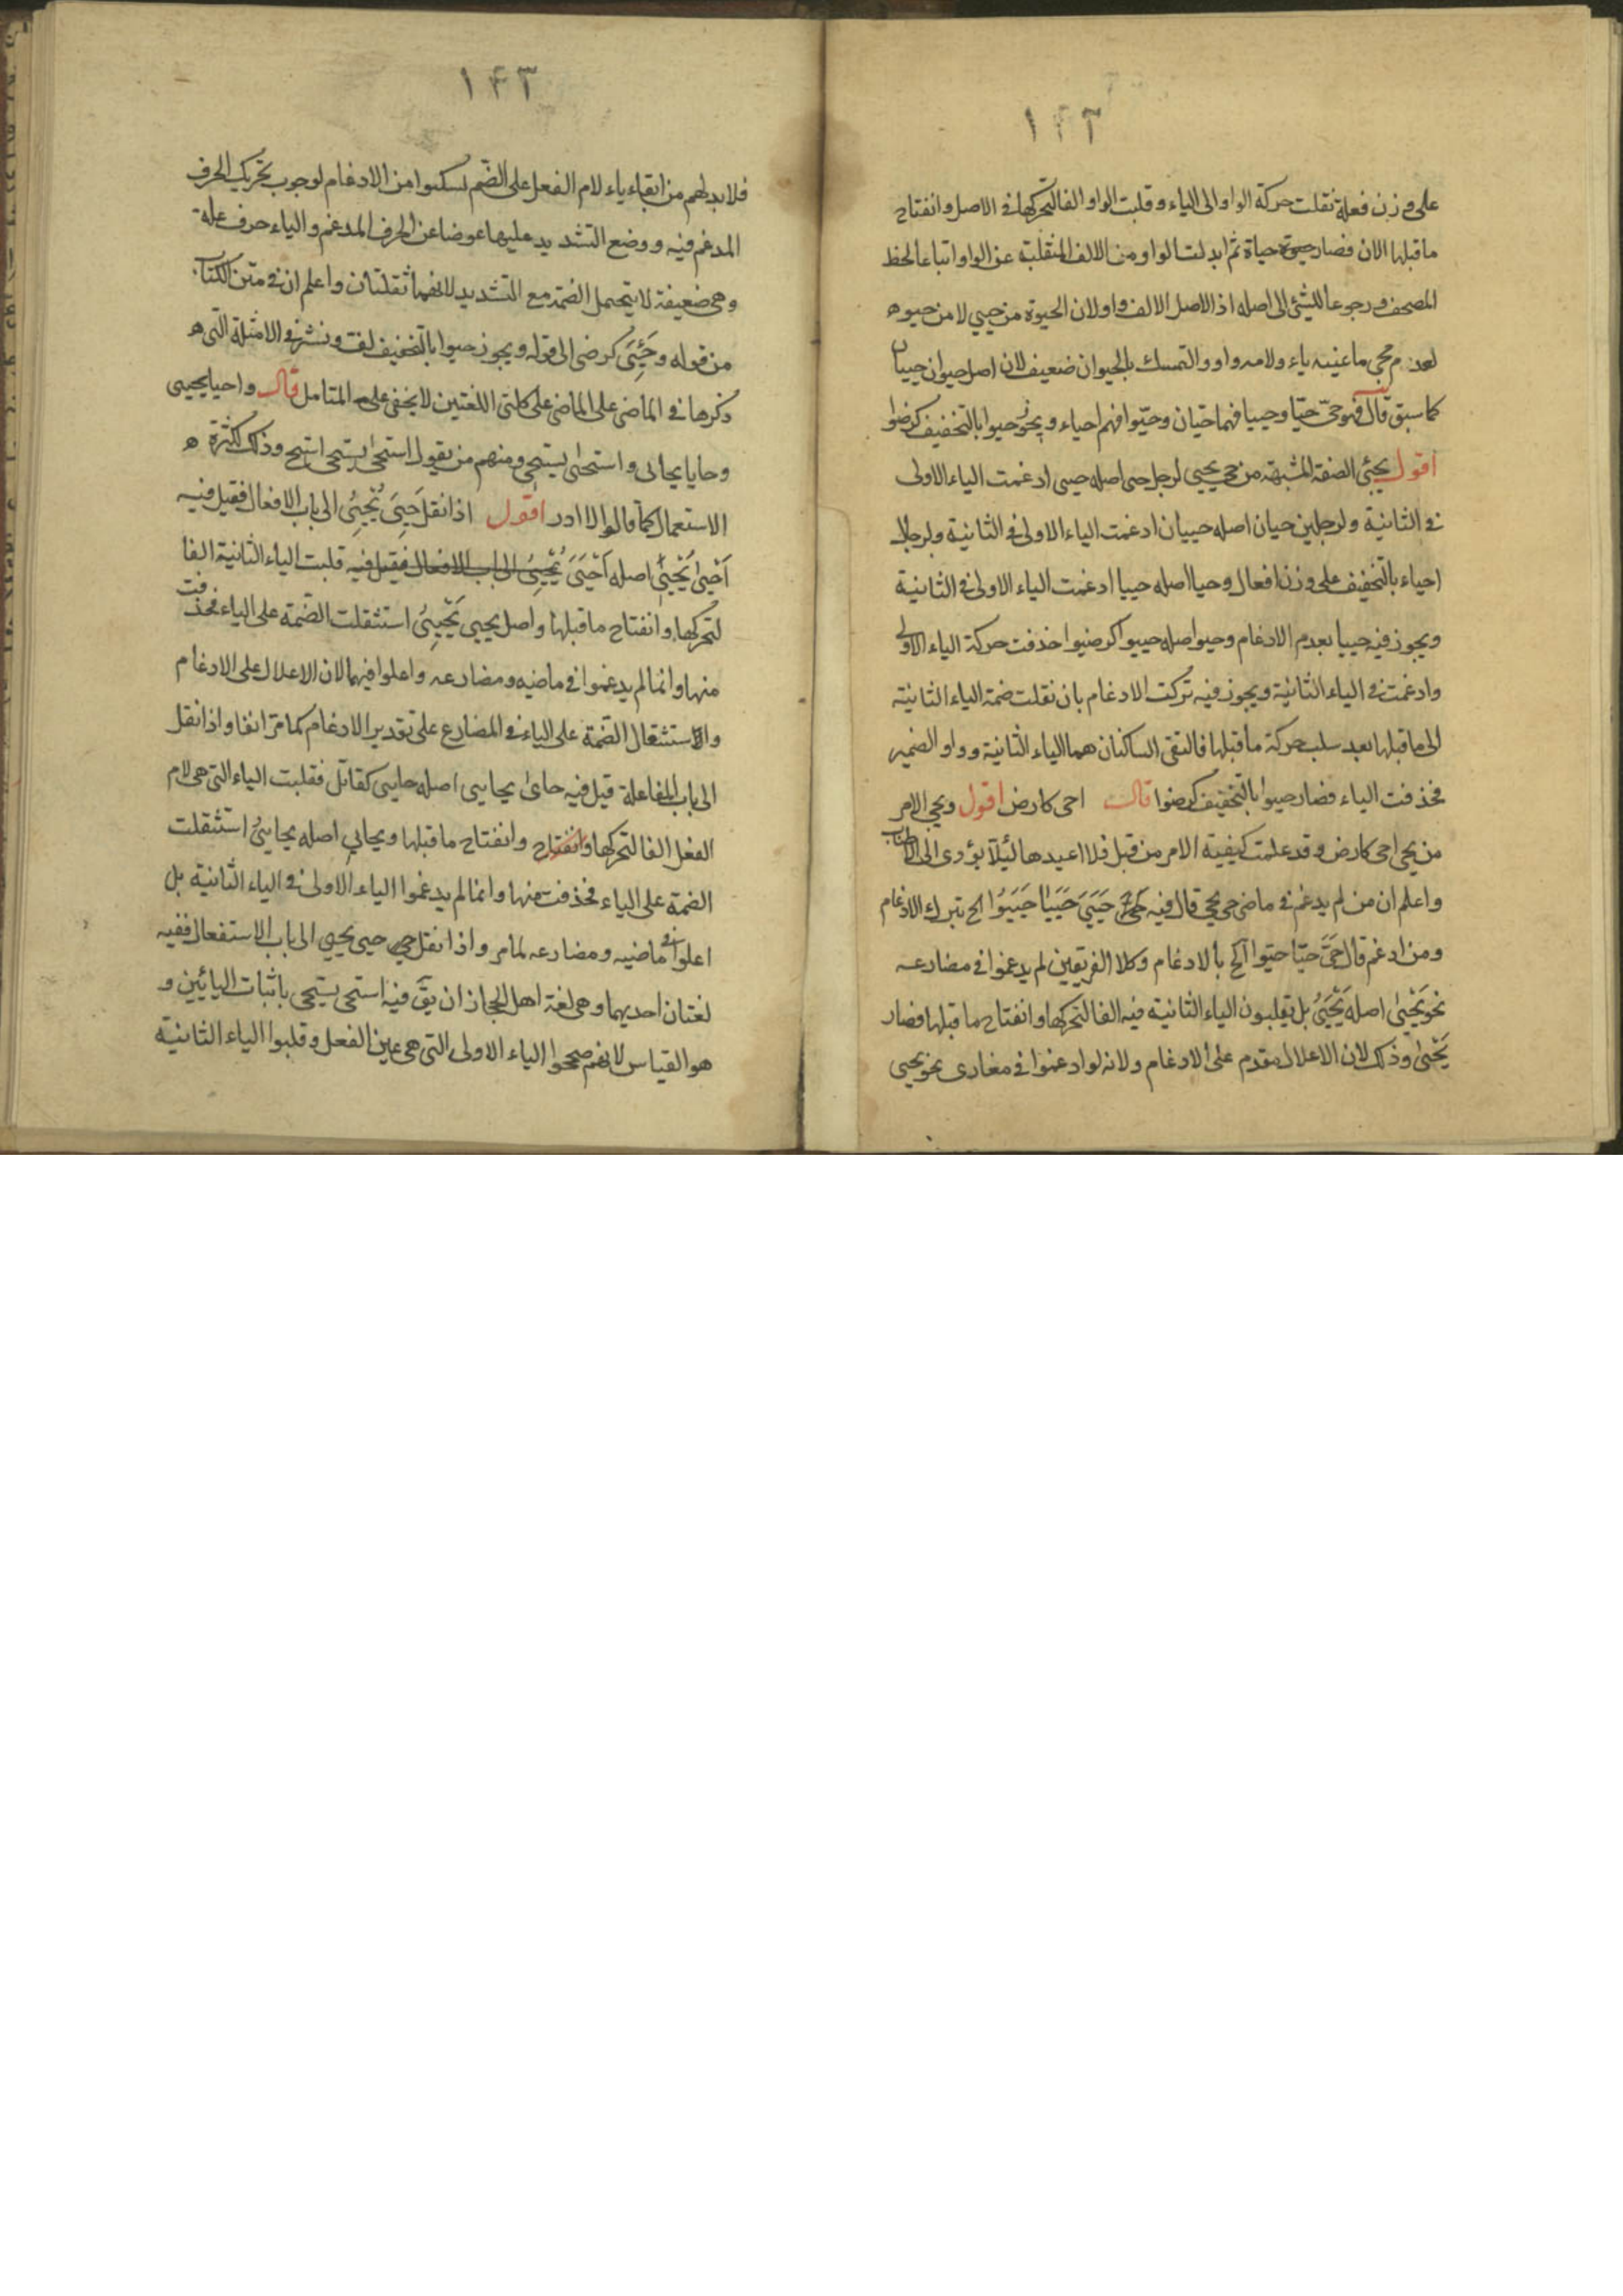 ١٤٣
على وزن فعلة نقلت حركة الواو الى الياء وقلبت الواو الفا لتحركها فى الاصل وانفتاح
ماقبلها الان فصار حيوة حياة ثم ابدلت الواو من الالف المنقلبة عن الواو اتباعا لخط
المصحف ورجوعا للشئ الى اصله اذ الاصل الالف واو لان الحيوة من حيي لا من حيوه
لعدم مجئ ما عينه ياء ولامه واو والتمسك بالحيوان ضعيف لان اصل حيوان حييان
كما سبق قال فهو حىّ حيّا وحييا فهما حيّان وحيّوا فهم احياء ويجوز حيوا بالتخفيف كرضوا
اقول يجئ الصفة المشبهة من حى يحيى لرجل حى اصله حيى ادغمت الياء الاولى
فى الثانية ولرجلين حيان اصله حييان ادغمت الياء الاولى فى الثانية ولرجال
احياء بالتخفيف على وزن افعال وحيا اصله حييا ادغمت الياء الاولى فى الثانية
ويجوز فيه حييا بعدم الادغام وحيوا صله حييوا كرضيوا حذفت حركة الياء الاولى
وادغمت فى الياء الثانية ويجوز فيه تركت الادغام بان نقلت ضمة الياء الثانية
الى ماقبلها بعد سلب حركة ماقبلها فالتقى الساكنان هما الياء الثانية وواو الضمير
فحذفت الياء فصار حيوا بالتخفيف كرضوا قال احى كارض اقول ويجئ الامر
من يحيى احى كارض وقد علمت كيفية الامر من قبل فلا اعيدها لئلا يؤدى الى الاطناب
واعلم ان من لم يدغم فى ماضى حى يحيى قال فيه حَيِىَ حَيِيَا حَيِيُوا الخ بترك الادغام
ومن ادغم قال حَىَّ حيّا حيّوا الخ بالادغام وكلا الفريقين لم يدغموا فى مضارعه
نحو يَحْيىٰ اصله يَحْيَىُ بل يقلبون الياء الثانية فيه الفا لتحركها وانفتاح ماقبلها فصار
يَحْيىٰ وذلك لان الاعلال مقدم على الادغام ولانه لو ادغموا فى مضارع نحو يحيى
١٤٣
فلابد لهم من ابقاء ياء لام الفعل على الضم لسكنوا من الادغام لوجوب تحريك الحرف
المدغم فيه ووضع التشديد عليها عوضا عن الحرف المدغم والياء حرف علة
وهى ضعيفة لا يتحمل الضمة مع التشديد لانهما ثقلتان واعلم ان فى متن الكتاب
من قوله وحَيِىَ كرضى الى قوله ويجوز حيوا بالتخفيف لف ونشر والامثلة التى ه
ذكرها فى الماضى على الماضى على كلتى اللغتين لا يخفى على المتامل قال واحيا يحيى
وحايا يحايى واستحيى يستحيى ومنهم من يقول استحى يستحى استح وذلك لكثرة ه
الاستعمال كما قالوا لا ادر اقول اذا نقل حَيِىَ يُحْيِىُ الى باب الافعال فقيل فيه
اَحْيىٰ يُحْيِى اصله اَحْيَىَ يُحْيِىُ الى باب الافعال فقيل فيه قلبت الياء الثانية الفا
لتحركها وانفتاح ماقبلها واصل يحيى يُحْيِىُ استثقلت الضمة على الياء فحذفت
منها وانما لم يدغموا فى ماضيه ومضارعه واعلوا فيهما لان الاعلال على الادغام
والاستثقال الضمة على الياء فى المضارع على تقدير الادغام كما مر انفا واذا نقل
الى باب المفاعلة قيل فيه حاىٰ يحايى اصله حايى كقاتل فقلبت الياء التى هى لام
الفعل الفا لتحركها وانفتاح وانفتاح ماقبلها ويحايى اصله يحايىُ استثقلت
الضمة على الياء فحذفت منها وانما لم يدغموا الياء الاولى فى الياء الثانية بل
اعلوا فى ماضيه ومضارعه لمامر واذا نقل حى حيى يحيى الى باب الاستفعال ففيه
لغتان احديهما وهى لغة اهل الحجاز ان يقّ فيه استحى يستحى باثبات اليائين و
هو القياس لانهم صححوا الياء الاولى التى هى عين الفعل وقلبوا الياء الثانية